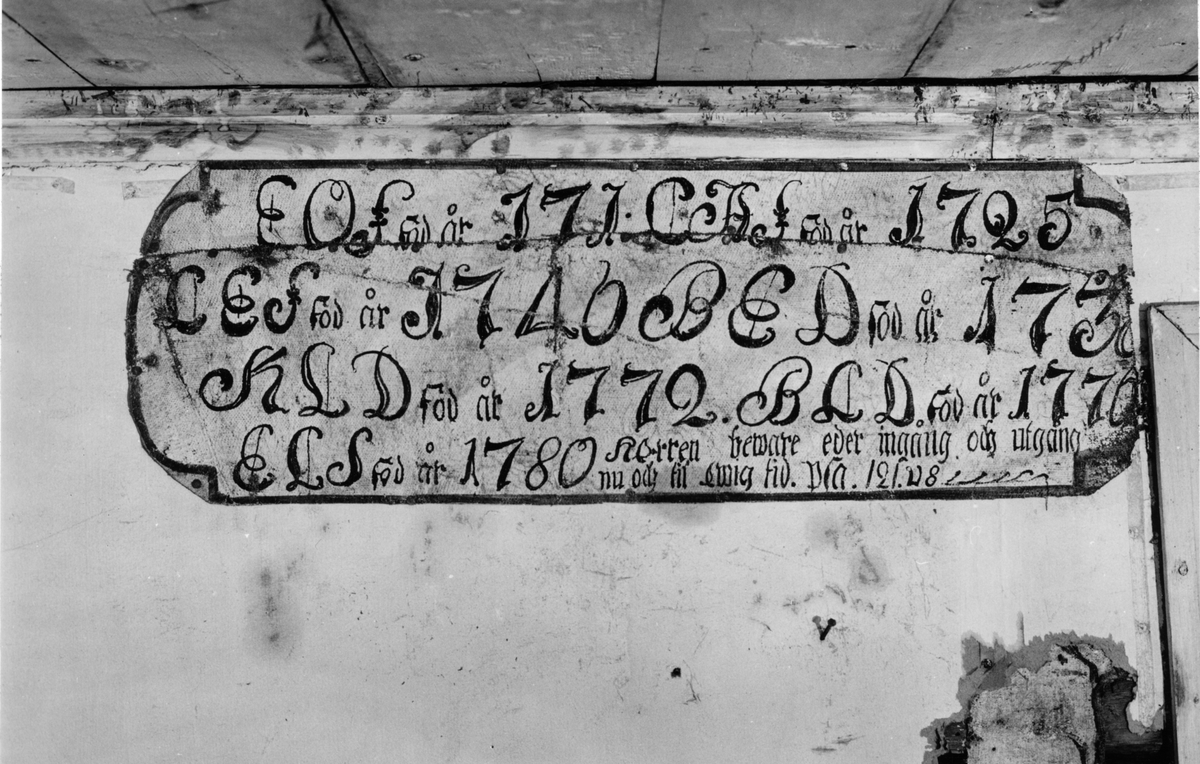 E O S föd år 171. C H S föd år 1725
L E S föd år 1746 B E D föd år 173
K L D föd år 1772. B L D. föd år 177
E L S föd år 1780 Herren beware eder ingång och utgång
nu och til ewig tid. Psa. 121. v 8